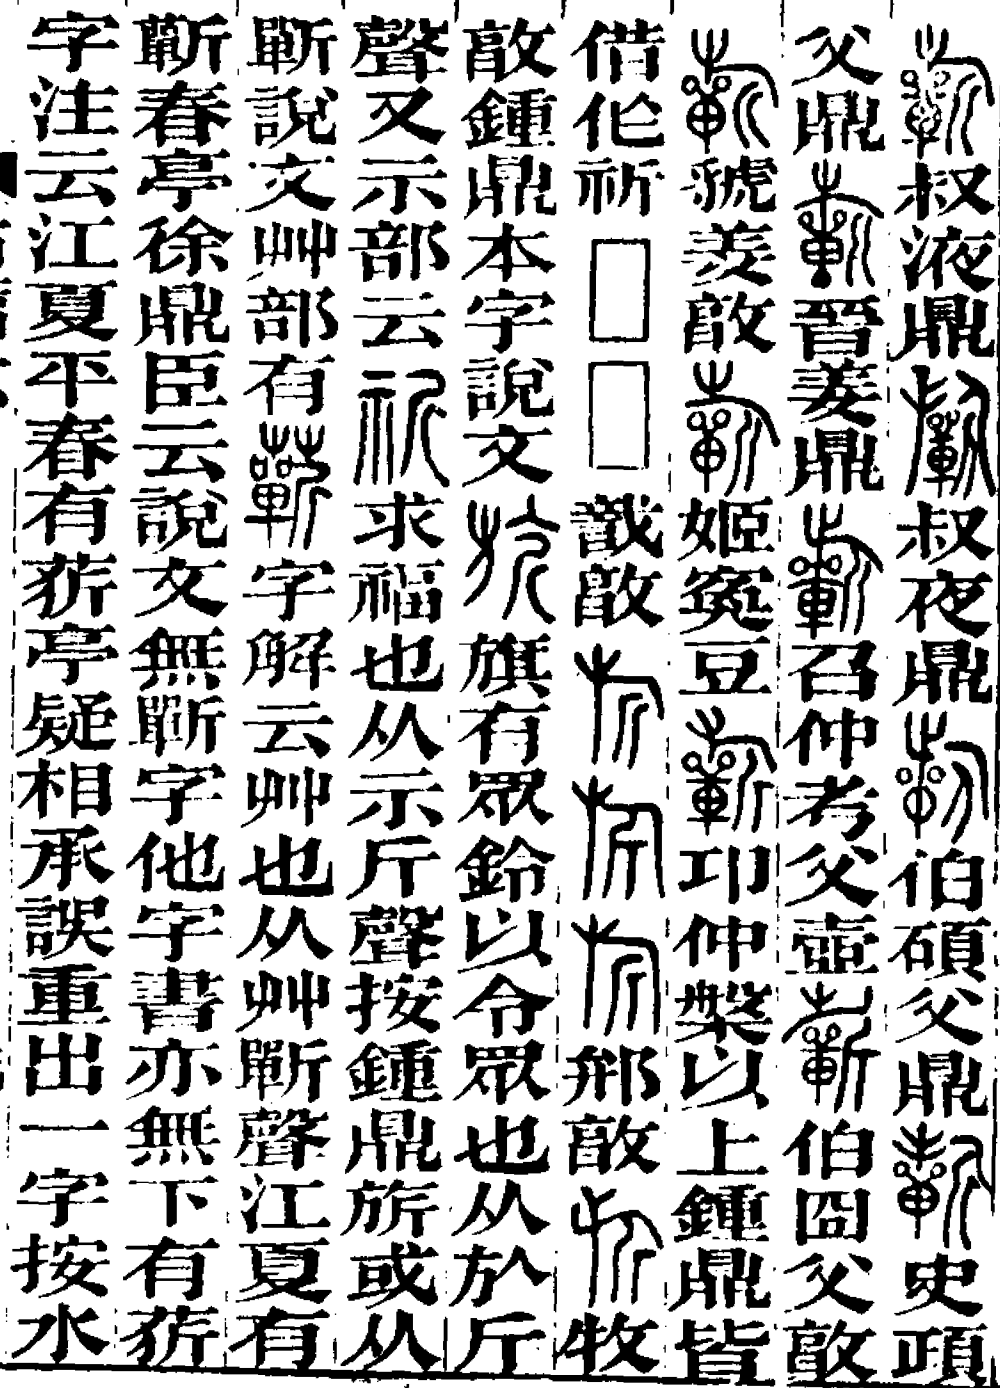 叔液鼎叔夜鼎伯碩父鼎史頙
父鼎晉姜鼎召仲考父壺伯囧父敦
虢姜敦姬寏豆卭仲槃以上鍾鼎皆
借伦祈□□戠敦䣙敦牧
敦鍾鼎本字說文旗有眾鈴以令眾也从㫃斤
聲又示部云求福也从示斤聲按鍾鼎旂或从
斳說文艸部有字解云艸也从艸斳聲江夏有
蘄春亭徐鼎臣云說文無斳字他字書亦無下有菥
字注云江夏平春有菥亭疑相承誤重出一字按水